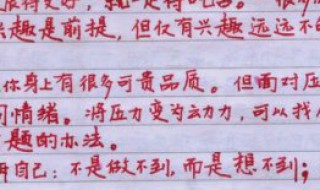 就一定得吃苦。
兴趣是前提,但仅有兴趣远远不
你身上有很多可贵品质。但面对压
情绪。将压力变为动力,可以找
题的办法。
自己:不是做不到,而是想不到;